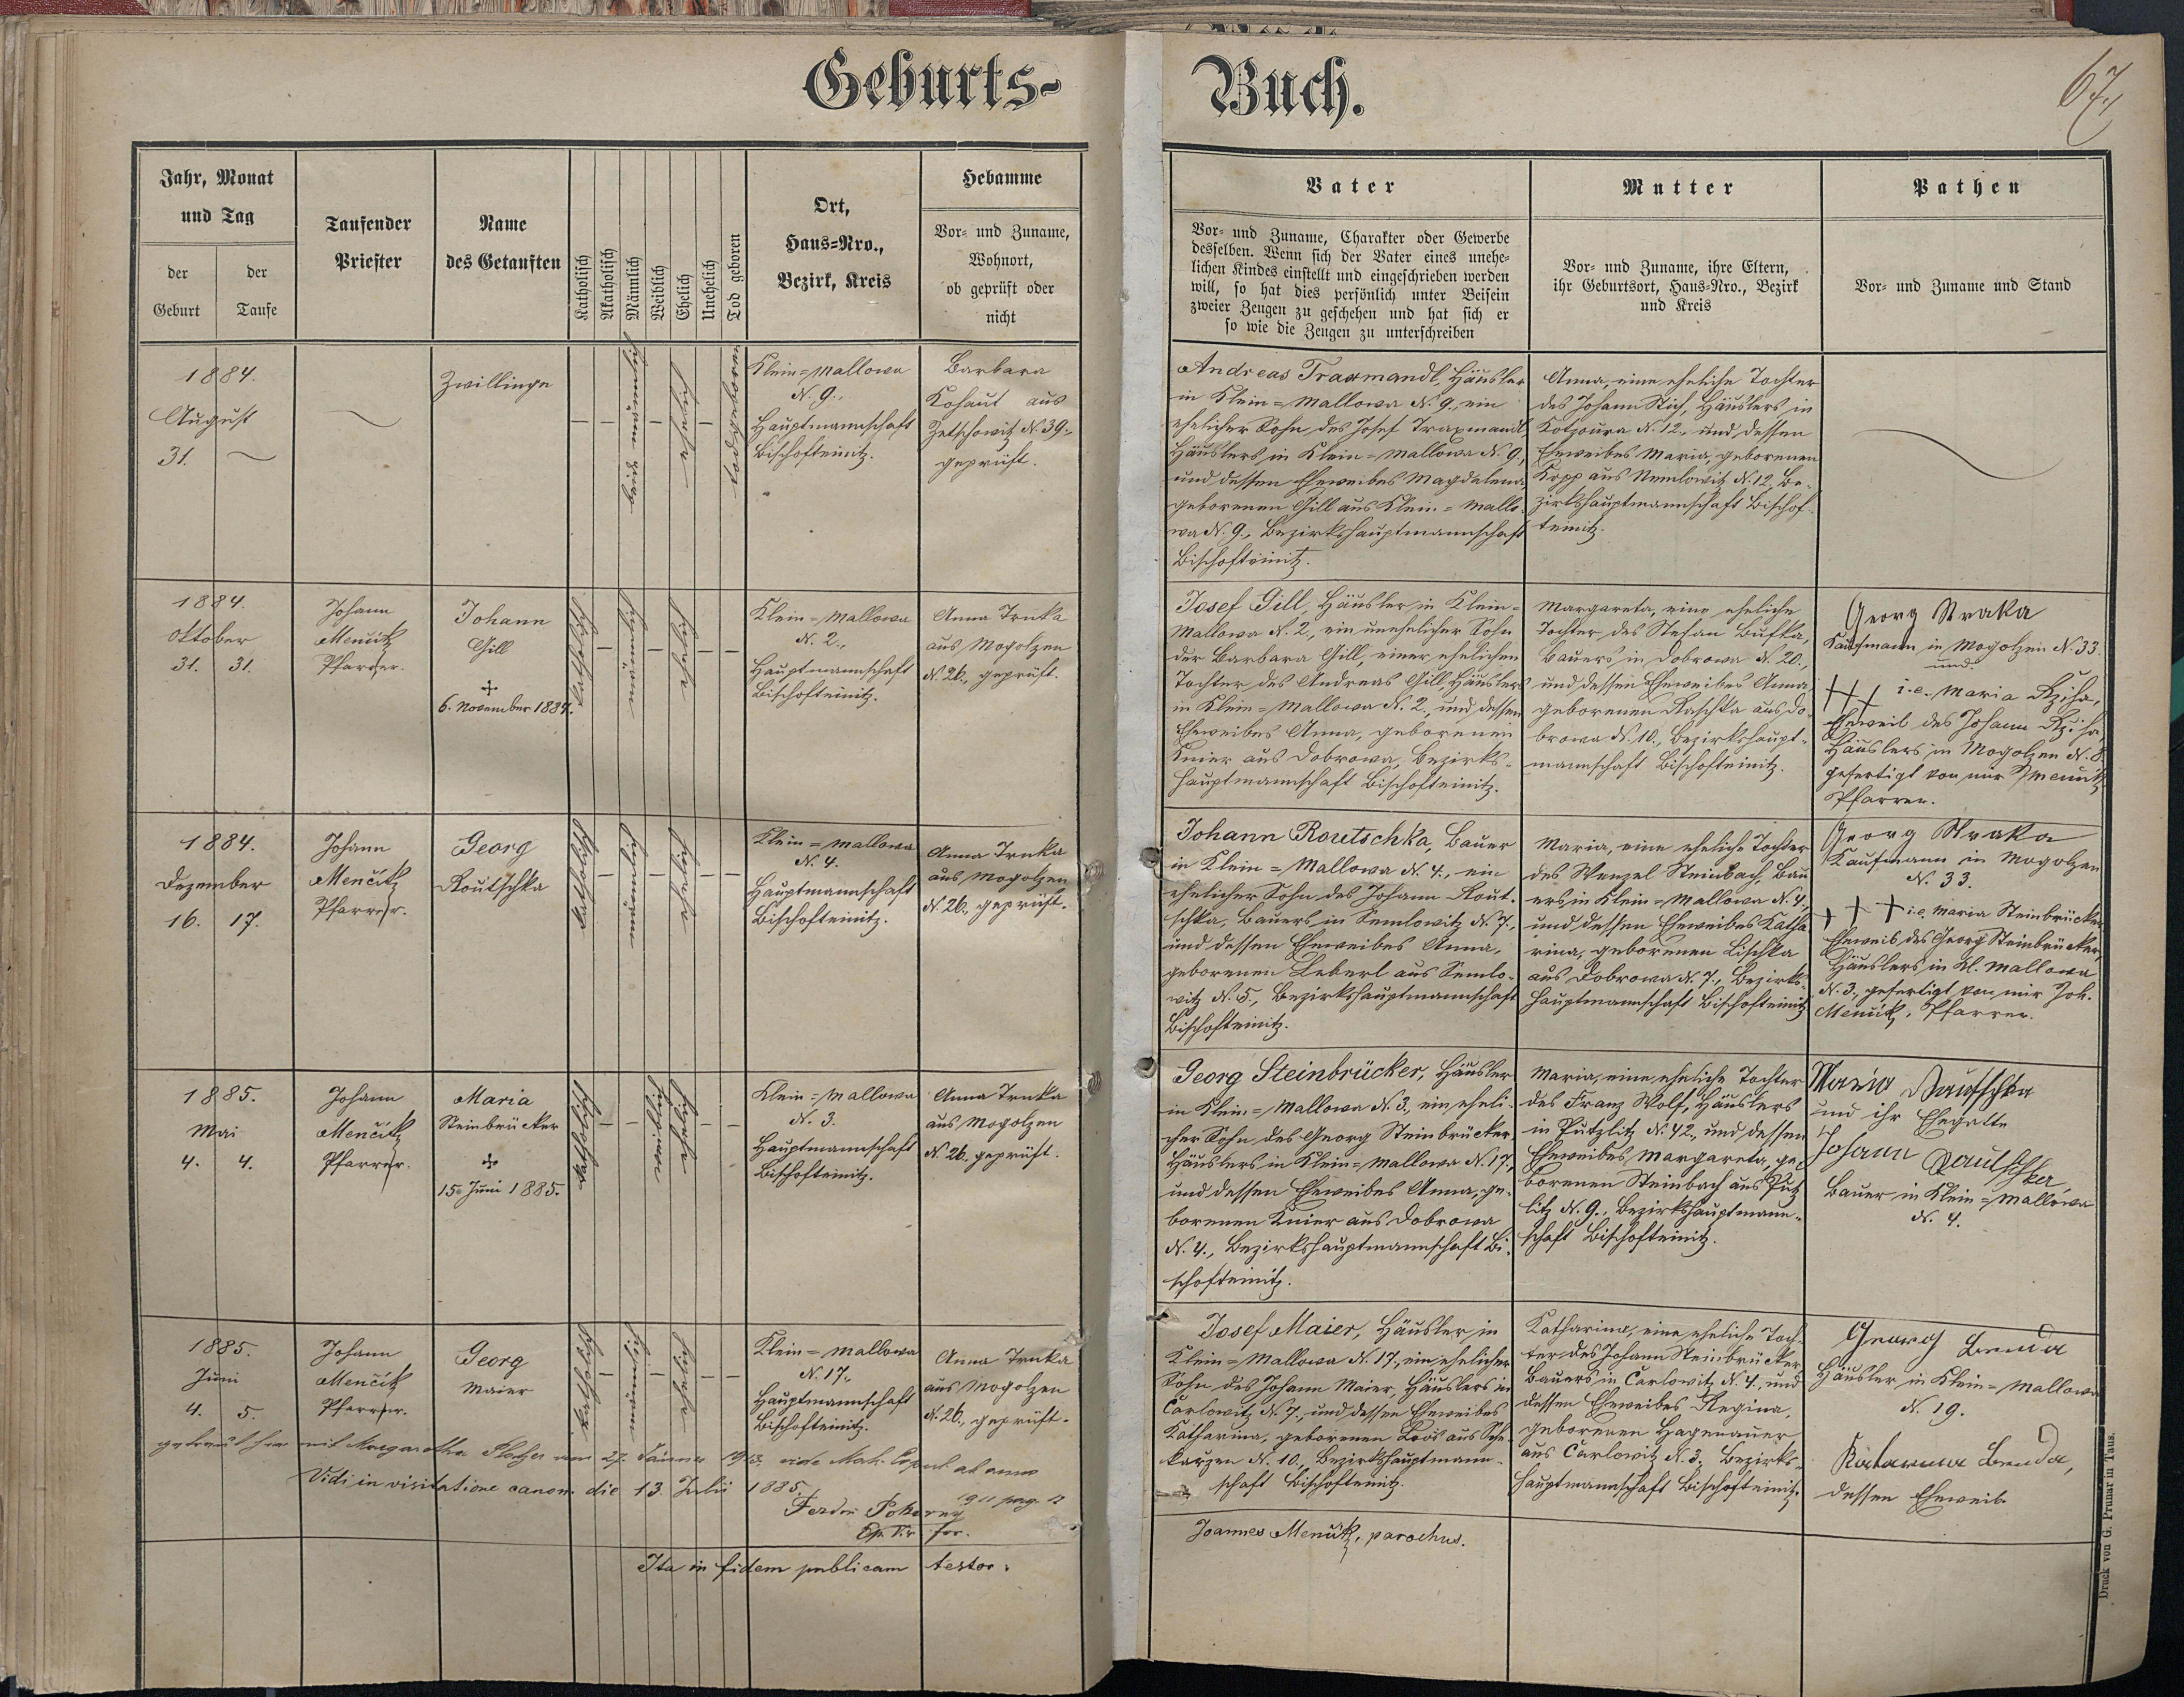 Geburts-
Jahr, Monat
und Tag
der
Geburt
der
Taufe
Taufender
Priester
Name
des Getauften
Katholisch
Akatholisch
Männlich
Weiblich
Ehelich
Unehelich
Tod geboren
Ort,
Haus-Nro.,
Bezirk, Kreis
Hebamme
Vor- und Zuname,
Wohnort,
ob geprüft oder
nicht
1884.
August
31.
Zwillinge
beide männlich
eheliche
todgeboren
Klein-Mallowa
N. 9.,
Hauptmannschaft
Bischofteinitz.
Barbara
Kohaut aus
Zetschowitz N. 39.,
geprüft.
1884.
Oktober
31. 31.
Johann
Menčik
Pfarrer.
Johann
Gill
6. November 1884.
katholisch
männlich
eheliche
Klein-Mallowa
N. 2.,
Hauptmannschaft
Bischofteinitz.
Anna Trnka
aus Mogolzen
N. 26., geprüft.
1884.
Dezember
16. 17.
Johann
Menčik
Pfarrer.
Georg
Routschka
katholisch
männlich
ehelich
Klein-Mallowa
N. 4.
Hauptmannschaft
Bischofteinitz.
Anna Trnka
aus Mogolzen
N. 26., geprüft.
1885.
Mai
4. 4.
Johann
Menčik
Pfarrer.
Maria
Steinbrücker
15. Juni 1885.
katholisch
weiblich
eheliche
Klein-Mallowa
N. 3.
Hauptmannschaft
Bischofteinitz.
Anna Trnka
aus Mogolzen
N. 26., geprüft.
1885.
Juni
4. 5.
Johann
Menčik
Pfarrer.
Georg
Maier
katholisch
männlich
ehelich
Klein-Mallowa
N. 17.,
Hauptmannschaft
Bischofteinitz.
Anna Trnka
aus Mogolzen
N. 26., geprüft.
getraut mit Margaretha am 27. Jänner 1913. vide Matr. Copul. ab anno
1911 pag. 12
Vidi in visitatione canon. die 13. Julii 1885.
Ferdin Pokorny
Ep. Vic. for.
Ita in fidem publicam testor:
Buch.
67
Vater
Vor- und Zuname, Charakter oder Gewerbe
desselben. Wenn sich der Vater eines unehe-
lichen Kindes einstellt und eingeschrieben werden
will, so hat dies persönlich unter Beisein
zweier Zeugen zu geschehen und hat sich er
so wie die Zeugen zu unterschreiben
Mutter
Vor- und Zuname, ihre Eltern,
ihr Geburtsort, Haus-Nro., Bezirk
und Kreis
Pathen
Vor- und Zuname und Stand
Andreas Traxmandl, Häusler
in Klein-Mallowa N. 9., ein
ehelicher Sohn des Josef Traxmandl,
Häuslers in Klein-Mallowa N. 9.,
und dessen Eheweibes Magdalena,
geborenen Gill aus Klein-Mallo-
wa N. 9., Bezirkshauptmannschaft
Bischofteinitz.
Anna, eine eheliche Tochter
des Johann Stich, Häuslers in
Kotzoura N. 12., und dessen
Eheweibes Maria, geborenen
Kopp aus Semlowitz N. 12, Be-
zirkshauptmannschaft Bischof-
teinitz.
Josef Gill, Häusler in Klein-
Mallowa N. 2., ein unehelicher Sohn
der Barbara Gill, einer ehelichen
Tochter des Andreas Gill, Häuslers
in Klein-Mallowa N. 2., und dessen
Eheweibes Anna, geborenen
Knier aus Dobrowa, Bezirks-
hauptmannschaft Bischofteinitz.
Margareta, eine eheliche
Tochter des Stefan Bufka,
Bauers in Dobrowa N. 20.,
und dessen Eheweibes Anna,
geborenen Raschka aus Do-
browa N. 10., Bezirkshaupt-
mannschaft Bischofteinitz.
Georg Straka
Kaufmann in Mogolzen N. 33.
und
+++ i.e. Maria Rziha,
Eheweib des Johann Rziha,
Häuslers in Mogolzen N. 8.
gefertigt von mir J Menčik
Pfarrer.
Johann Routschka, Bauer
in Klein-Mallowa N. 4., ein
ehelicher Sohn des Johann Rout-
schka, Bauers in Semlowitz N. 7.,
und dessen Eheweibes Anna,
geborenen Leberl aus Semlo-
witz N. 5., Bezirkshauptmannschaft
Bischofteinitz.
Maria, eine eheliche Tochter
des Wenzel Steinbach, Bau-
ers in Klein-Mallowa N. 4.,
und dessen Eheweibes Katha-
rina, geborenen Lischka
aus Dobrowa N. 7., Bezirks-
hauptmannschaft Bischofteinitz
Georg Straka
Kaufmann in Mogolzen
N. 33.
+++ i.e. Maria Steinbrücker,
Eheweib des Georg Steinbrücker,
Häuslers in Kl. Mallowa
N. 3., gefertigt von mir Joh.
Menčik, Pfarrer.
Georg Steinbrücker, Häusler
in Klein-Mallowa N. 3., ein eheli-
cher Sohn des Georg Steinbrücker,
Häuslers in Klein-Mallowa N. 17.,
und dessen Eheweibes Anna, ge-
borenen Knier aus Dobrowa
N. 4., Bezirkshauptmannschaft Bi-
schofteinitz.
Maria, eine eheliche Tochter
des Franz Wolf, Häuslers
in Putzlitz N. 42., und dessen
Eheweibes Margareta, ge-
borenen Steinbach aus Putz-
litz N. 9., Bezirkshauptmann-
schaft Bischofteinitz.
Maria Rautschka
und ihr Ehegatte
Johann Rautschka
Bauer in Klein-Mallowa
N. 4.
Josef Maier, Häusler in
Klein-Mallowa N. 17., ein ehelicher
Sohn des Johann Maier, Häuslers in
Carlowitz N. 7., und dessen Eheweibes
Katharina, geborenen aus
N. 10., Bezirkshauptmann-
schaft Bischofteinitz.
Katharina, eine eheliche Toch-
ter des Johann Steinbrücker,
Bauers in Carlowitz N. 4., und
dessen Eheweibes Regina,
geborenen Hagenauer
aus Carlowitz N. 3., Bezirks-
hauptmannschaft Bischofteinitz
Georg Benda
Häusler in Klein-Mallowa
N. 19.
Katarina Benda,
dessen Eheweib.
Joannes Menčik, parochus.
Druck von G. Prunar in Taus.